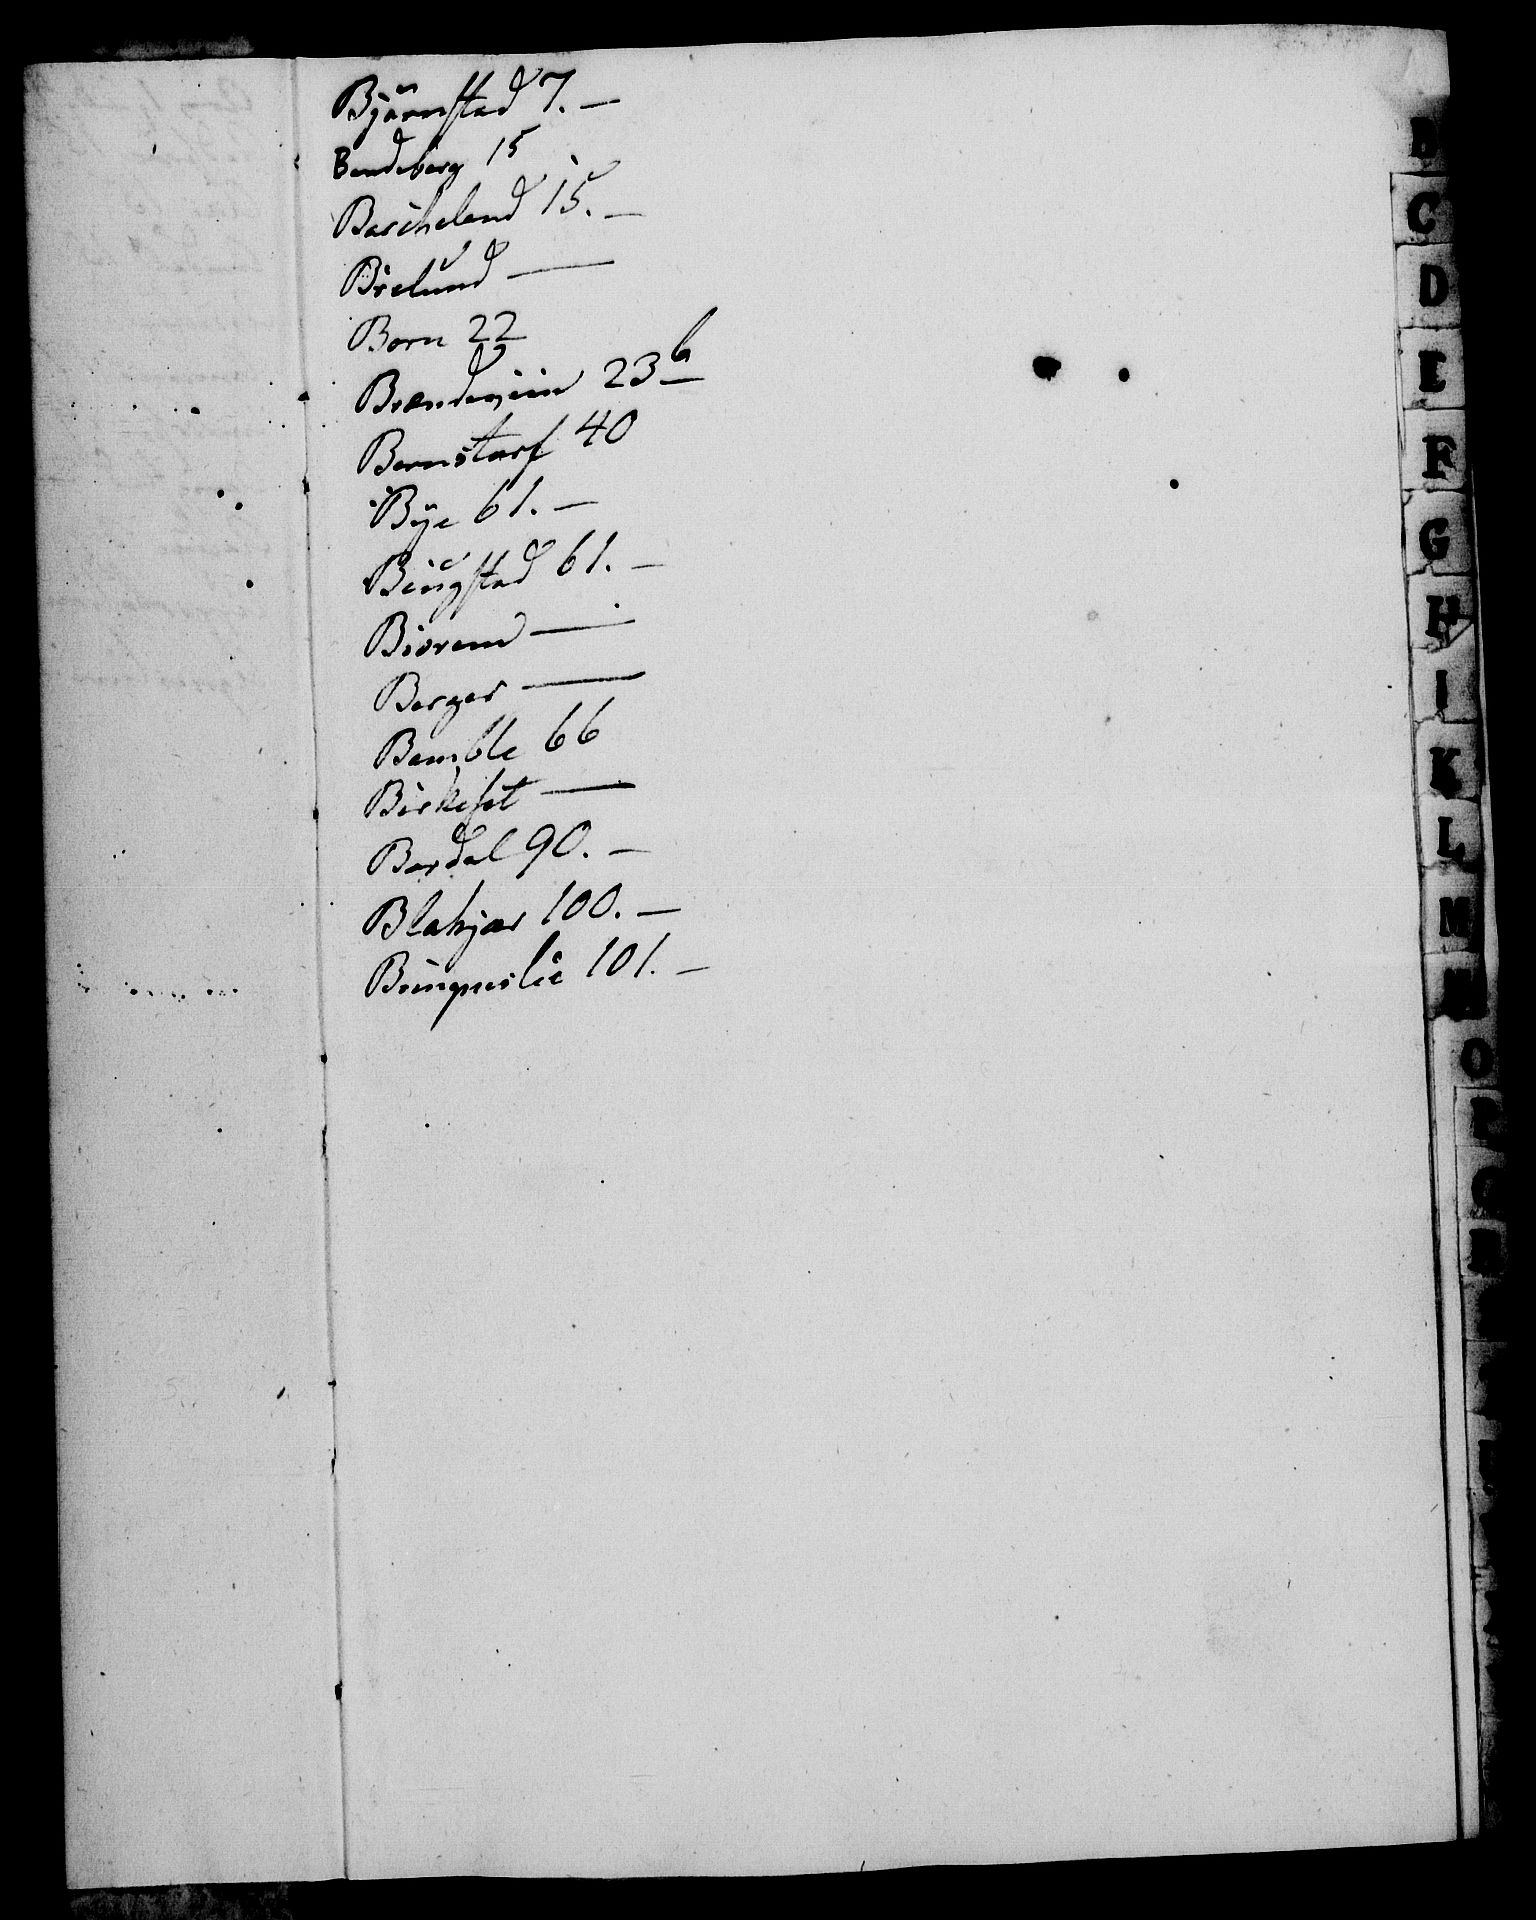 Bjørnstad 7. —
Bendeberg 15
Barcheland 15. —
Birelund —
Born 22
Brændejein 23 b
Bernstorf 40
Bye 61. —
Bingstad 61. —
Biorend —
Berger —
Bamble 66
Birkeset —
Bardal 90. —
Blakjær 100. —
101. —
B
C
D
E
F
G
H
I
K
L
M
N
O